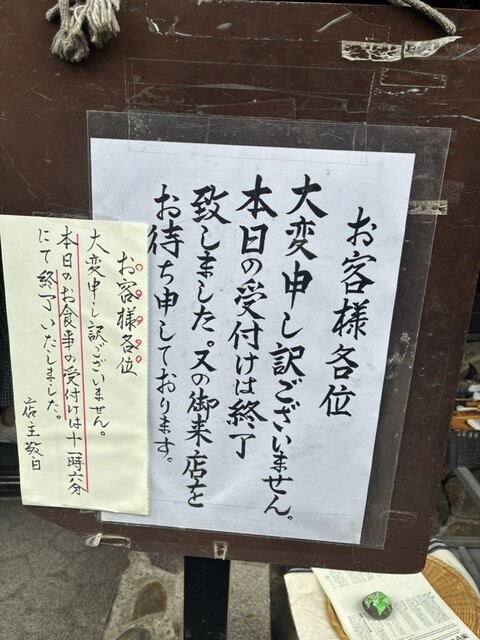 お客様各位
大変申し訳ございません。
本日の受付けは終了
致しました。又の御来店を
お待ち申しております。
お客様各位
大変申し訳ございません。
本日のお食事の受付けは十一時六分
にて終了いたしました。
店主敬白